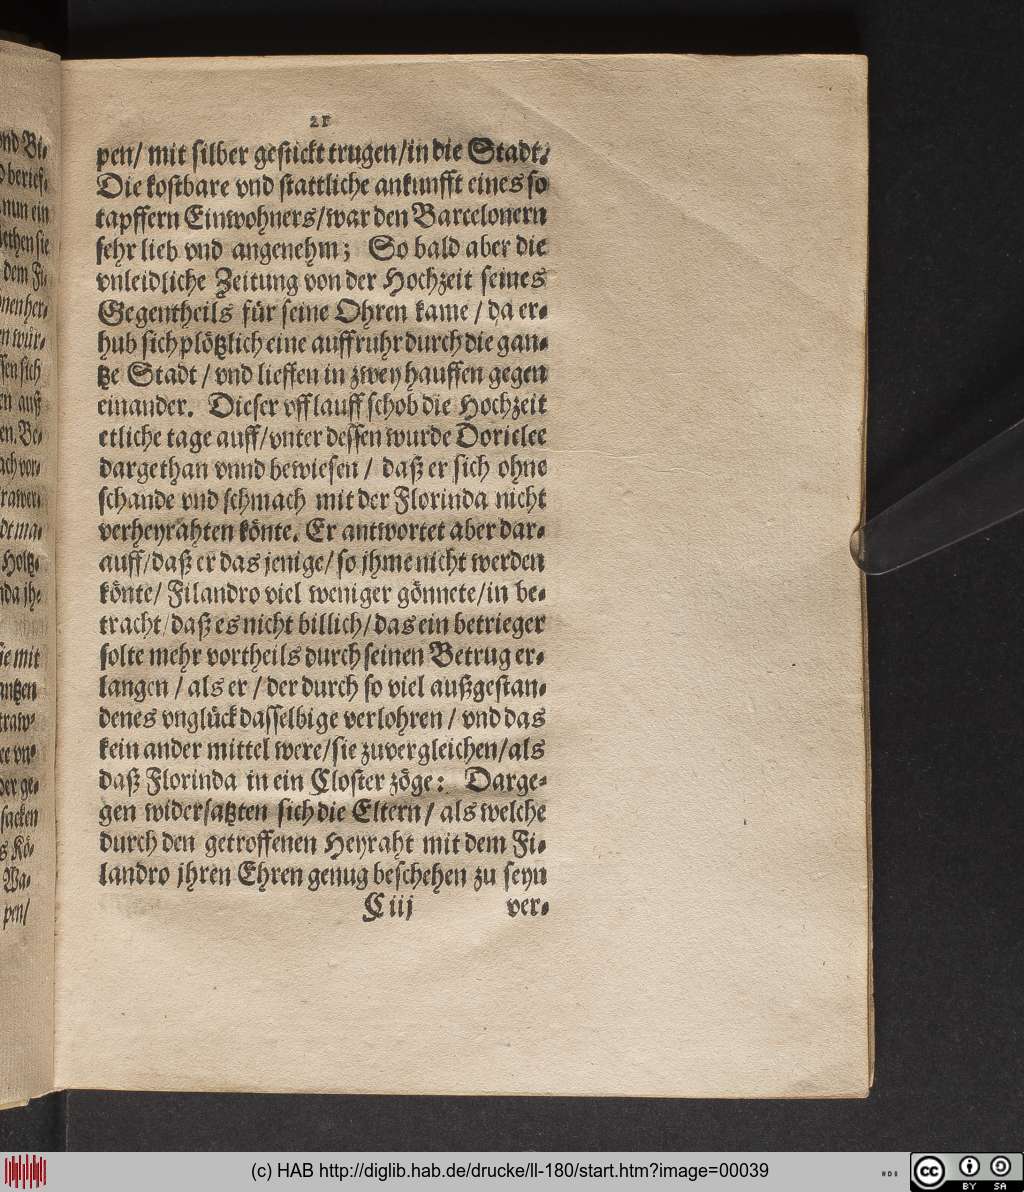 21
pen/ mit silber gestickt trugen/in die Stadt.
Die kostbare vnd stattliche ankunfft eines so
tapffern Einwohners/war den Barcelonern
sehr lieb vnd angenehm; So bald aber die
vnleidliche Zeitung von der Hochzeit seines
Gegentheils für seine Ohren kame / da er-
hub sich plötzlich eine auffruhr durch die gan-
tze Stadt / vnd lieffen in zwey hauffen gegen
einander. Dieser vfflauff schob die Hochzeit
etliche tage auff/vnter dessen wurde Doriclee
dargethan vnnd bewiesen / daß er sich ohne
schande vnd schmach mit der Florinda nicht
verheyrahten könte. Er antwortet aber dar-
auff/daß er das jenige/ so jhme nicht werden
könte/ Filandro viel weniger gönnete/in be-
tracht/daß es nicht billich/das ein betrieger
solte mehr vortheils durch seinen Betrug er-
langen / als er / der durch so viel außgestan-
denes vnglück dasselbige verlohren / vnd das
kein ander mittel were/sie zuvergleichen/als
daß Florinda in ein Closter zöge: Darge-
gen widersatzten sich die Eltern / als welche
durch den getroffenen Heyraht mit dem Fi-
landro jhren Ehren genug beschehen zu seyn
C iij ver-
vnd Bi-
nun ein
dem Fi-
nen her-
en wür-
ssen sich
en auß
ach vor-
dt ma-
Holtz-
nda jh-
sie mit
antzen
der ge-
sacken
s Kö-
Wa-
pen/
(c) HAB http://diglib.hab.de/drucke/ll-180/start.htm?image=00039
cc BY SA